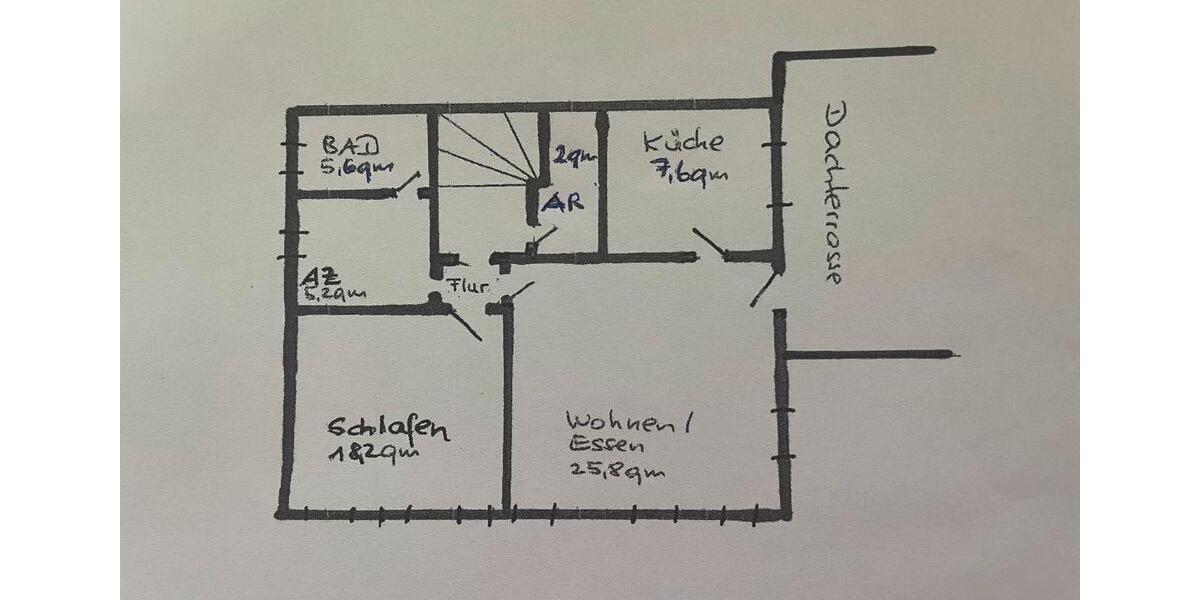 BAD
5,6qm
2qm
AR
Küche
7,6qm
Dachterrosse
AZ
5,2qm
Flur
Schlafen
18,2qm
Wohnen/
Essen
25,8qm